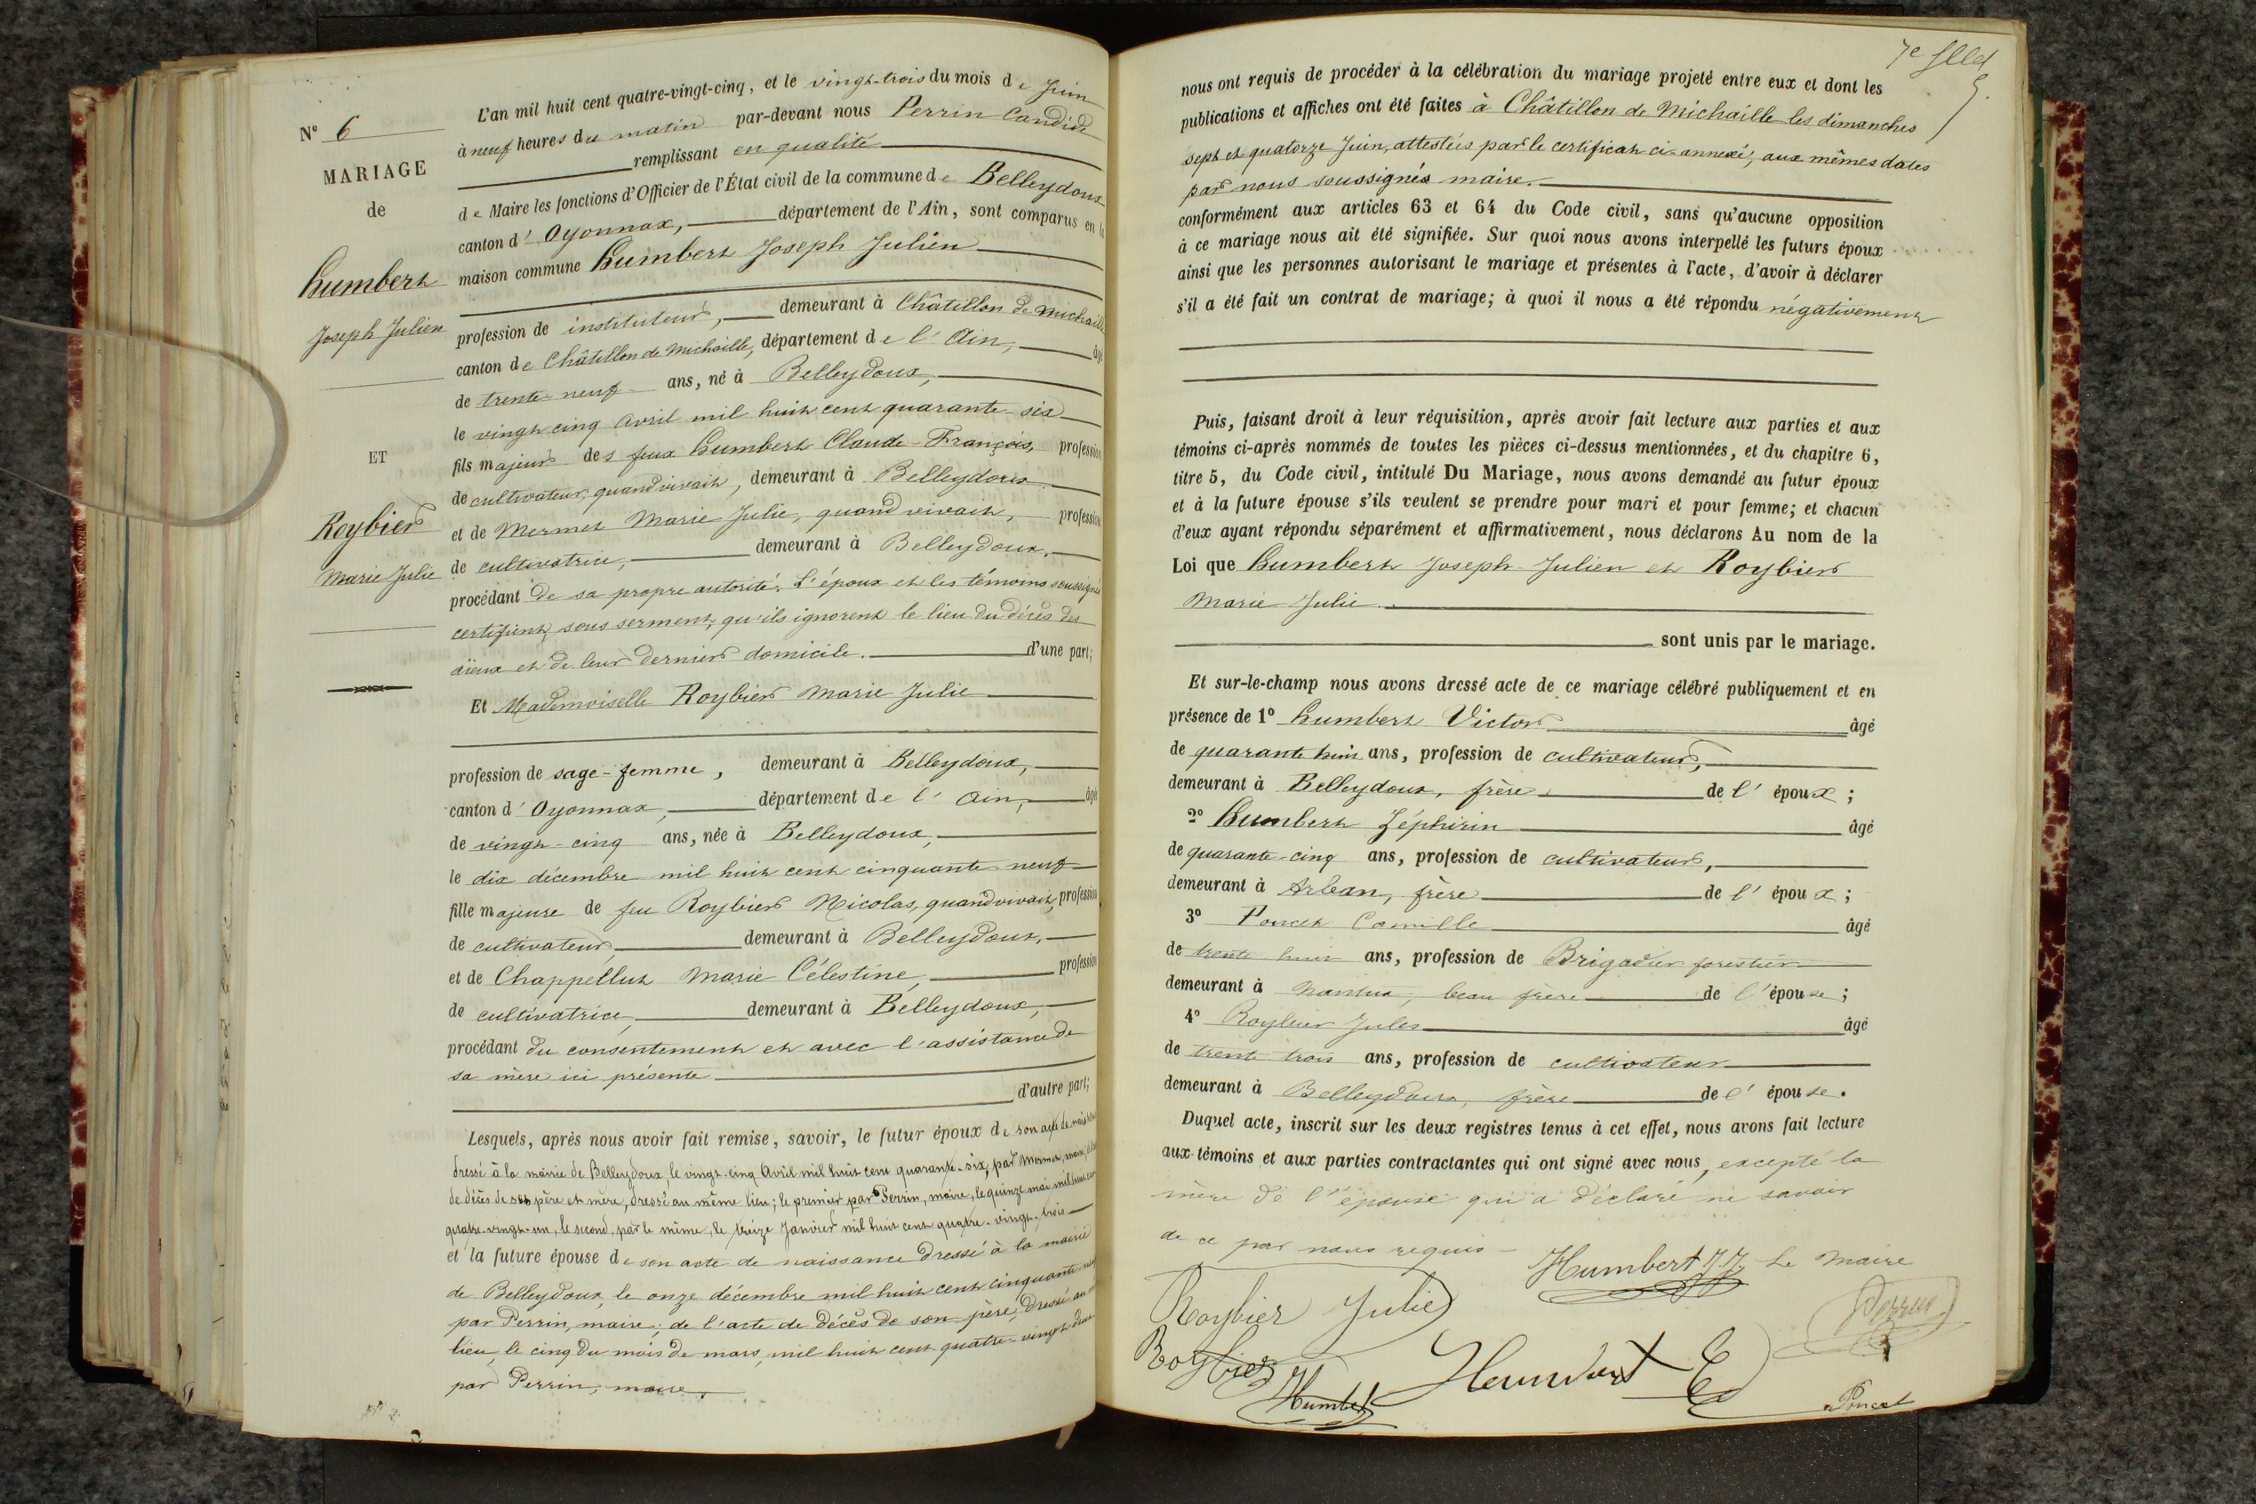 N° 6
MARIAGE
de
Humbert
Joseph Julien
ET
Roybier
Marie Julie
L'an mil huit cent quatre-vingt-cinq, et le vingt-trois du mois de Juin
à neuf heures du matin par-devant nous Perrin Candide
remplissant en qualité
de Maire les fonctions d'Officier de l'État civil de la commune de Belleydoux
canton d' Oyonnax, département de l'Ain, sont comparus en la
maison commune Humbert Joseph Julien
profession de instituteur, demeurant à Châtillon de Michaille
canton de Châtillon de Michaille, département de l' Ain, âgé
de trente-neuf ans, né à Belleydoux,
le vingt cinq avril mil huit cent quarante-six
fils majeur des feux Humbert Claude-François, profession
de cultivateur, quand vivait, demeurant à Belleydoux
et de Mermet Marie Julie, quand vivait, profession
de cultivatrice, demeurant à Belleydoux,
procédant de sa propre autorité. L'époux et les témoins soussignés
certifient, sous serment, qu'ils ignorent le lieu du décès des
aïeux et de leur dernier domicile. d'une part;
Et Mademoiselle Roybier Marie Julie
profession de sage-femme, demeurant à Belleydoux,
canton d' Oyonnax, département de l' Ain, âgé
de vingt-cinq ans, née à Belleydoux,
le dix décembre mil huit cent cinquante neuf
fille majeure de feu Roybier Nicolas, quand vivait, profession
de cultivateur, demeurant à Belleydoux,
et de Chappelluz Marie Célestine, profession
de cultivatrice, demeurant à Belleydoux,
procédant du consentement et avec l'assistance de
sa mère ici présente
d'autre part;
Lesquels, après nous avoir fait remise, savoir, le futur époux de son acte de naissance
dressé à la mairie de Belleydoux, le vingt-cinq Avril mil huit cent quarante-six, par Mermet, maire,
de décès de ses père et mère, dressé au même lieu; le premier par Perrin, maire, le quinze mai mil huit cent
quatre-vingt-un, le second, par le même, le treize Janvier mil huit cent quatre-vingt-trois
et la future épouse de son acte de naissance dressé à la mairie
de Belleydoux, le onze décembre mil huit cent cinquante neuf
par Perrin, maire; de l'acte de décès de son père, dressé au
lieu, le cinq du mois de mars, mil huit cent quatre-vingt deux
par Perrin, maire.
7e
nous ont requis de procéder à la célébration du mariage projeté entre eux et dont les
publications et affiches ont été faites à Châtillon de Michaille les dimanches
sept et quatorze Juin, attestées par le certificat ci-annexé; aux mêmes dates
par nous soussignés maire.
conformément aux articles 63 et 64 du Code civil, sans qu'aucune opposition
à ce mariage nous ait été signifiée. Sur quoi nous avons interpellé les futurs époux
ainsi que les personnes autorisant le mariage et présentes à l'acte, d'avoir à déclarer
s'il a été fait un contrat de mariage; à quoi il nous a été répondu négativement
Puis, faisant droit à leur réquisition, après avoir fait lecture aux parties et aux
témoins ci-après nommés de toutes les pièces ci-dessus mentionnées, et du chapitre 6,
titre 5, du Code civil, intitulé Du Mariage, nous avons demandé au futur époux
et à la future épouse s'ils veulent se prendre pour mari et pour femme; et chacun
d'eux ayant répondu séparément et affirmativement, nous déclarons Au nom de la
Loi que Humbert Joseph-Julien et Roybier
Marie Julie
sont unis par le mariage.
Et sur-le-champ nous avons dressé acte de ce mariage célébré publiquement et en
présence de 1° Humbert Victor âgé
de quarante huit ans, profession de cultivateur,
demeurant à Belleydoux, frère de l' époux;
2° Humbert Zéphirin âgé
de quarante-cinq ans, profession de cultivateur,
demeurant à Arban, frère de l' époux;
3° Poncet Camille âgé
de trente huit ans, profession de Brigadier forestier
demeurant à Nantua, beau frère de l'épouse;
4° Roybier Jules âgé
de trente trois ans, profession de cultivateur
demeurant à Belleydoux, frère de l' épouse.
Duquel acte, inscrit sur les deux registres tenus à cet effet, nous avons fait lecture
aux témoins et aux parties contractantes qui ont signé avec nous, excepté la
mère de l'épouse qui a déclaré ne savoir
de ce par nous requis
Humbert JJ. Le Maire
Roybier Julie
Perrin
Roybier
Humbert
Humbert
Poncet